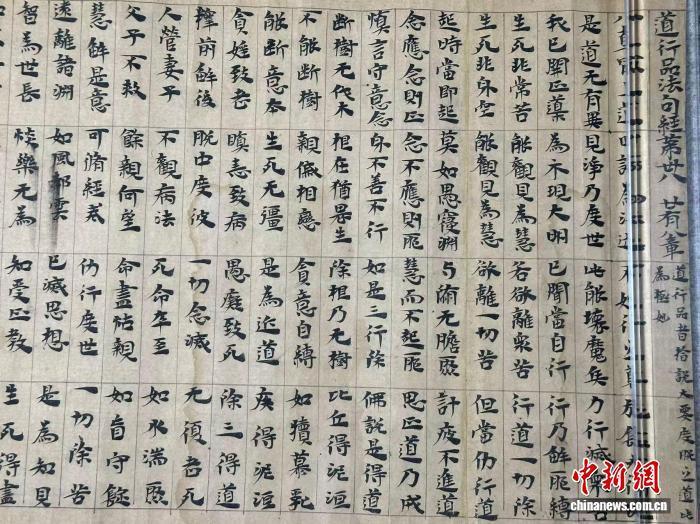 道行品法句經第卅八 廿有八章 道行品者指說大要度脫之道此
為極妙
是道无有異 見淨乃度世 此能壞魔兵 力行滅
我已開正道 為示現大明 已聞當自行 行乃解邪縛
生死非常苦 能觀見為慧 若欲離眾苦 行道一切除
生死非常空 能觀見為慧 欲離一切苦 但當仂行道
起時當即起 莫如愚寑淵 与術无瞻聚 計疲不進道
念應念則正 念不應則邪 慧而不起邪 思正道乃成
慎言守意念 身不善不行 如是三行除 佛說是得道
斷樹无伐本 根在猶畏生 除根乃无樹 比丘得泥洹
不能斷樹 親慼相戀 貪意自縛 如犢慕乳
能斷意本 生死无彊 是為近道 疾得泥洹
貪婬致老 瞋恚致病 愚癡致死 除三得道
釋前解後 脫中度彼 一切念滅 无復老死
人營妻子 不觀病法 死命卒至 如水湍聚
父子不救 餘親何望 命盡怙親 如盲守錠
慧解是意 可脩經戒 仂行度世 一切除苦
遠離諸淵 如風却雲 已滅思想 是為知見
智為世長 惔樂无為 知受正教 生死得盡
中新网
chinanews.com